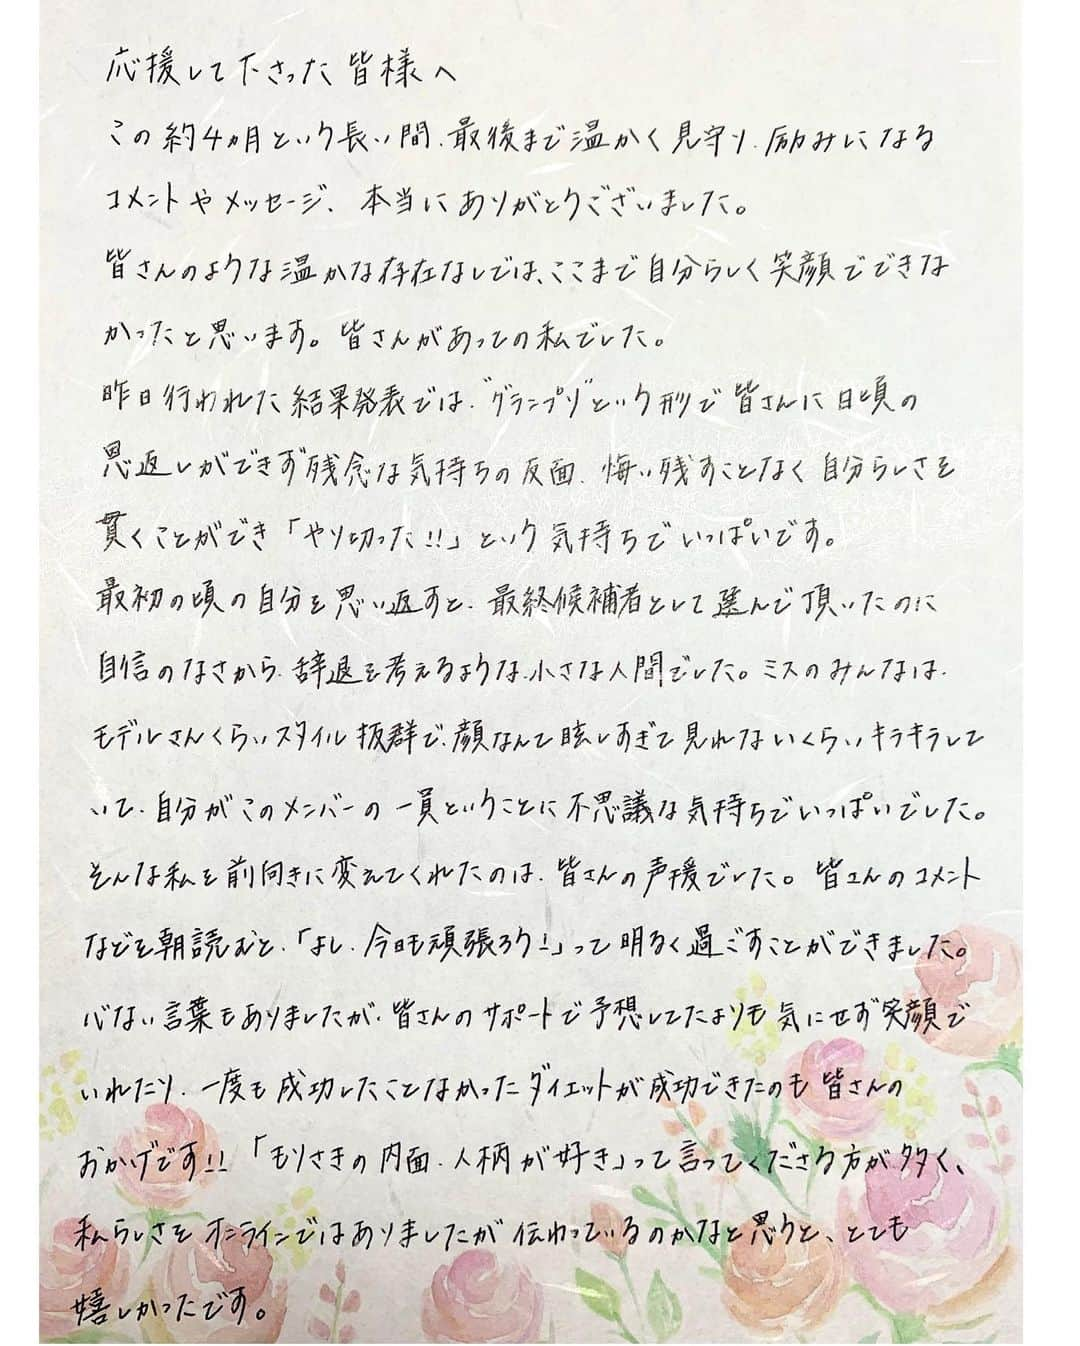 応援して下さった皆様へ
この約4ヵ月という長い間、最後まで温かく見守り、励みになる
コメントやメッセージ、本当にありがとうございました。
皆さんのような温かな存在なしでは、ここまで自分らしく笑顔でできな
かったと思います。皆さんがあっての私でした。
昨日行われた結果発表では、"グランプリ"という形で皆さんに日頃の
恩返しができず残念な気持ちの反面、悔い残すことなく自分らしさを
貫くことができ「やり切った!!」という気持ちでいっぱいです。
最初の頃の自分を思い返すと、最終候補者として選んで頂いたのに
自信のなさから、辞退を考えるような、小さな人間でした。ミスのみんなは、
モデルさんくらいスタイル抜群で、顔なんて眩しすぎて見れないくらいキラキラして
いて、自分がこのメンバーの一員ということに不思議な気持ちでいっぱいでした。
そんな私を前向きに変えてくれたのは、皆さんの声援でした。皆さんのコメント
などを朝読むと、「よし、今日も頑張ろう!」って明るく過ごすことができました。
心ない言葉もありましたが、皆さんのサポートで予想してたよりも気にせず笑顔で
いれたり、一度も成功したことなかったダイエットが成功できたのも皆さんの
おかげです!!「もりさきの内面、人柄が好き」って言ってくださる方が多く、
私らしさをオンラインではありましたが伝わっているのかなと思うと、とても
嬉しかったです。